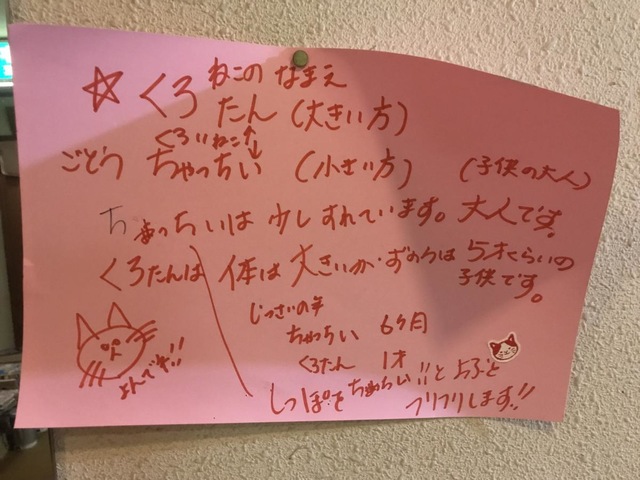 ねこのなまえ
☆くろたん(大きい方)
くろいねこ↑
ごとう ちゃっちい (小さい方) (子供の大人)
ちゃっちいは少しすれています。大人です。
くろたんは 体は大きいが・ずのうは5才くらいの
子供です。
じっさいの年
ちゃっちい 6ヶ月
くろたん 1才
よんでネ!!
しっぽをちゃっちい!!とよぶと
フリフリします!!